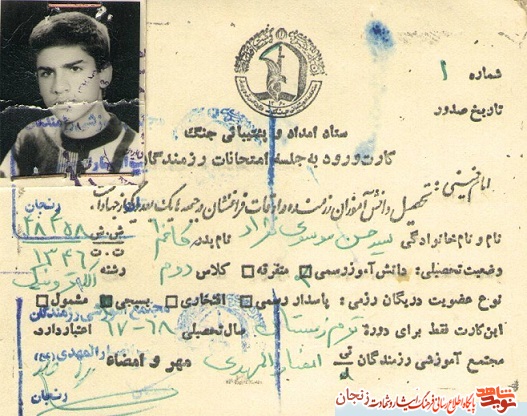 شماره ۱
تاریخ صدور
ستاد امداد و پشتیبانی جنگ
کارت ورود به جلسه امتحانات رزمندگان
امام خمینی: تحصیل دانش آموزان رزمنده در اوقات فراغتشان در جبهه ها یک
نام و نام خانوادگی سید حسن موسوی نژاد نام پدر کاظم ش.ش ۴۸۳۵۸
وضعیت تحصیلی: دانش آموز رسمی متفرقه کلاس دوم رشته ت.ت ۱۳۴۶
نوع عضویت در یگان رزمی: پاسدار رسمی افتخاری بسیجی مشمول
این کارت فقط برای دوره: ترم زمستان سال تحصیلی ۶۸-۶۷ اعتبار دارد.
مجتمع آموزشی رزمندگان انصارالمهدی مهر و امضاء
مجتمع آموزشی رزمندگان
انصارالمهدی (عج)
زنجان
زنجان
نوید شاهد
پایگاه اطلاع رسانی فرهنگ ایثار و شهادت زنجان